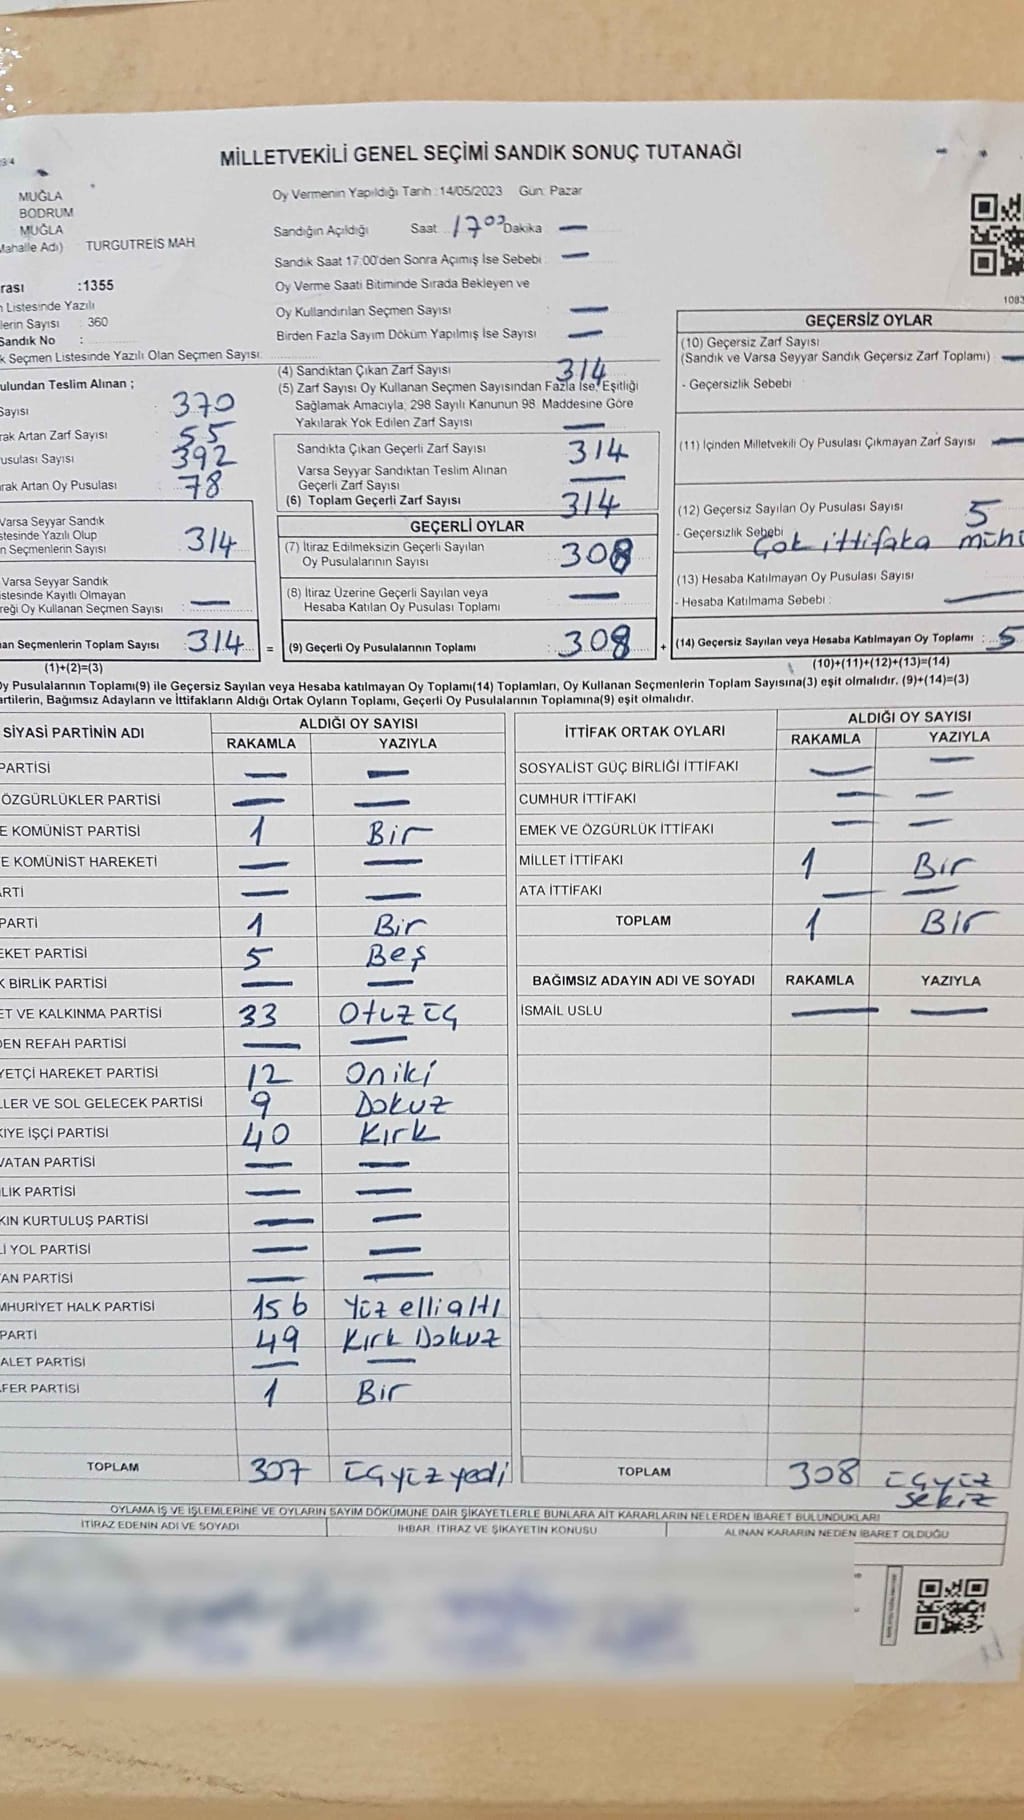 MİLLETVEKİLİ GENEL SEÇİMİ SANDIK SONUÇ TUTANAĞI
MUĞLA
BODRUM
MUĞLA
Mahalle Adı) TURGUTREİS MAH
rası :1355
Listesinde Yazılı
lerin Sayısı : 360
Sandık No :
k Seçmen Listesinde Yazılı Olan Seçmen Sayısı
Oy Vermenin Yapıldığı Tarih :14/05/2023 Gün: Pazar
Sandığın Açıldığı Saat 17 Dakika —
Sandık Saat 17:00'den Sonra Açımış İse Sebebi : —
Oy Verme Saati Bitiminde Sırada Bekleyen ve
Oy Kullandırılan Seçmen Sayısı —
Birden Fazla Sayım Döküm Yapılmış İse Sayısı —
ulundan Teslim Alınan ;
Sayısı 370
rak Artan Zarf Sayısı 55
usulası Sayısı 392
rak Artan Oy Pusulası 78
Varsa Seyyar Sandık
stesinde Yazılı Olup
n Seçmenlerin Sayısı 314
Varsa Seyyar Sandık
istesinde Kayıtlı Olmayan
reği Oy Kullanan Seçmen Sayısı —
nan Seçmenlerin Toplam Sayısı : 314 =
(1)+(2)=(3)
(4) Sandıktan Çıkan Zarf Sayısı 314
(5) Zarf Sayısı Oy Kullanan Seçmen Sayısından Fazla İse, Eşitliği
Sağlamak Amacıyla, 298 Sayılı Kanunun 98. Maddesine Göre
Yakılarak Yok Edilen Zarf Sayısı —
Sandıkta Çıkan Geçerli Zarf Sayısı 314
Varsa Seyyar Sandıktan Teslim Alınan
Geçerli Zarf Sayısı —
(6) Toplam Geçerli Zarf Sayısı 314
GEÇERLİ OYLAR
(7) İtiraz Edilmeksizin Geçerli Sayılan
Oy Pusulalarının Sayısı 308
(8) İtiraz Üzerine Geçerli Sayılan veya
Hesaba Katılan Oy Pusulası Toplamı —
(9) Geçerli Oy Pusulalarının Toplamı 308 +
GEÇERSİZ OYLAR
(10) Geçersiz Zarf Sayısı
(Sandık ve Varsa Seyyar Sandık Geçersiz Zarf Toplamı) —
- Geçersizlik Sebebi :
(11) İçinden Milletvekili Oy Pusulası Çıkmayan Zarf Sayısı —
(12) Geçersiz Sayılan Oy Pusulası Sayısı 5
- Geçersizlik Sebebi Çok ittifaka mühü
(13) Hesaba Katılmayan Oy Pusulası Sayısı
- Hesaba Katılmama Sebebi : —
(14) Geçersiz Sayılan veya Hesaba Katılmayan Oy Toplamı : 5
(10)+(11)+(12)+(13)=(14)
Oy Pusulalarının Toplamı(9) ile Geçersiz Sayılan veya Hesaba katılmayan Oy Toplamı(14) Toplamları, Oy Kullanan Seçmenlerin Toplam Sayısına(3) eşit olmalıdır. (9)+(14)=(3)
artilerin, Bağımsız Adayların ve İttifakların Aldığı Ortak Oyların Toplamı, Geçerli Oy Pusulalarının Toplamına(9) eşit olmalıdır.
SİYASİ PARTİNİN ADI ALDIĞI OY SAYISI
RAKAMLA YAZIYLA
PARTİSİ — —
ÖZGÜRLÜKLER PARTİSİ — —
E KOMÜNİST PARTİSİ 1 Bir
E KOMÜNİST HAREKETİ — —
ARTİ — —
PARTİ 1 Bir
EKET PARTİSİ 5 Beş
K BİRLİK PARTİSİ — —
ET VE KALKINMA PARTİSİ 33 Otuz üç
DEN REFAH PARTİSİ — —
YETÇİ HAREKET PARTİSİ 12 Oniki
LLER VE SOL GELECEK PARTİSİ 9 Dokuz
KIYE İŞÇİ PARTİSİ 40 Kırk
VATAN PARTİSİ — —
LİK PARTİSİ — —
KIN KURTULUŞ PARTİSİ — —
Lİ YOL PARTİSİ — —
AN PARTİSİ — —
MHURİYET HALK PARTİSİ 156 Yüz elli altı
PARTİ 49 Kırk Dokuz
ALET PARTİSİ — —
FER PARTİSİ 1 Bir
TOPLAM 307 üçyüz yedi
İTTİFAK ORTAK OYLARI ALDIĞI OY SAYISI
RAKAMLA YAZIYLA
SOSYALİST GÜÇ BİRLİĞİ İTTİFAKI — —
CUMHUR İTTİFAKI — —
EMEK VE ÖZGÜRLÜK İTTİFAKI — —
MİLLET İTTİFAKI 1 Bir
ATA İTTİFAKI — —
TOPLAM 1 Bir
BAĞIMSIZ ADAYIN ADI VE SOYADI RAKAMLA YAZIYLA
İSMAİL USLU — —
TOPLAM 308 üçyüz
sekiz
OYLAMA İŞ VE İŞLEMLERİNE VE OYLARIN SAYIM DÖKÜMÜNE DAİR ŞİKAYETLERLE BUNLARA AİT KARARLARIN NELERDEN İBARET BULUNDUKLARI
İTİRAZ EDENİN ADI VE SOYADI İHBAR, İTİRAZ VE ŞİKAYETİN KONUSU ALINAN KARARIN NEDEN İBARET OLDUĞU